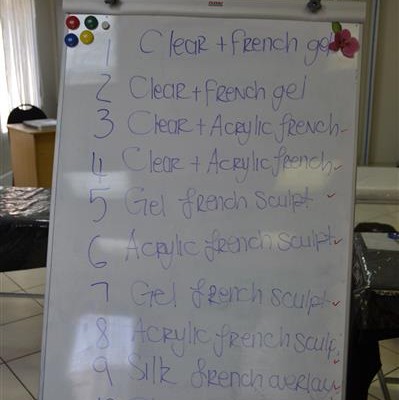 1 Clear + french gel
2 Clear + french gel
3 Clear + Acrylic french
4 Clear + Acrylic french
5 Gel french sculpt
6 Acrylic french sculpt
7 Gel french sculpt
8 Acrylic french sculp
9 Silk french overlay